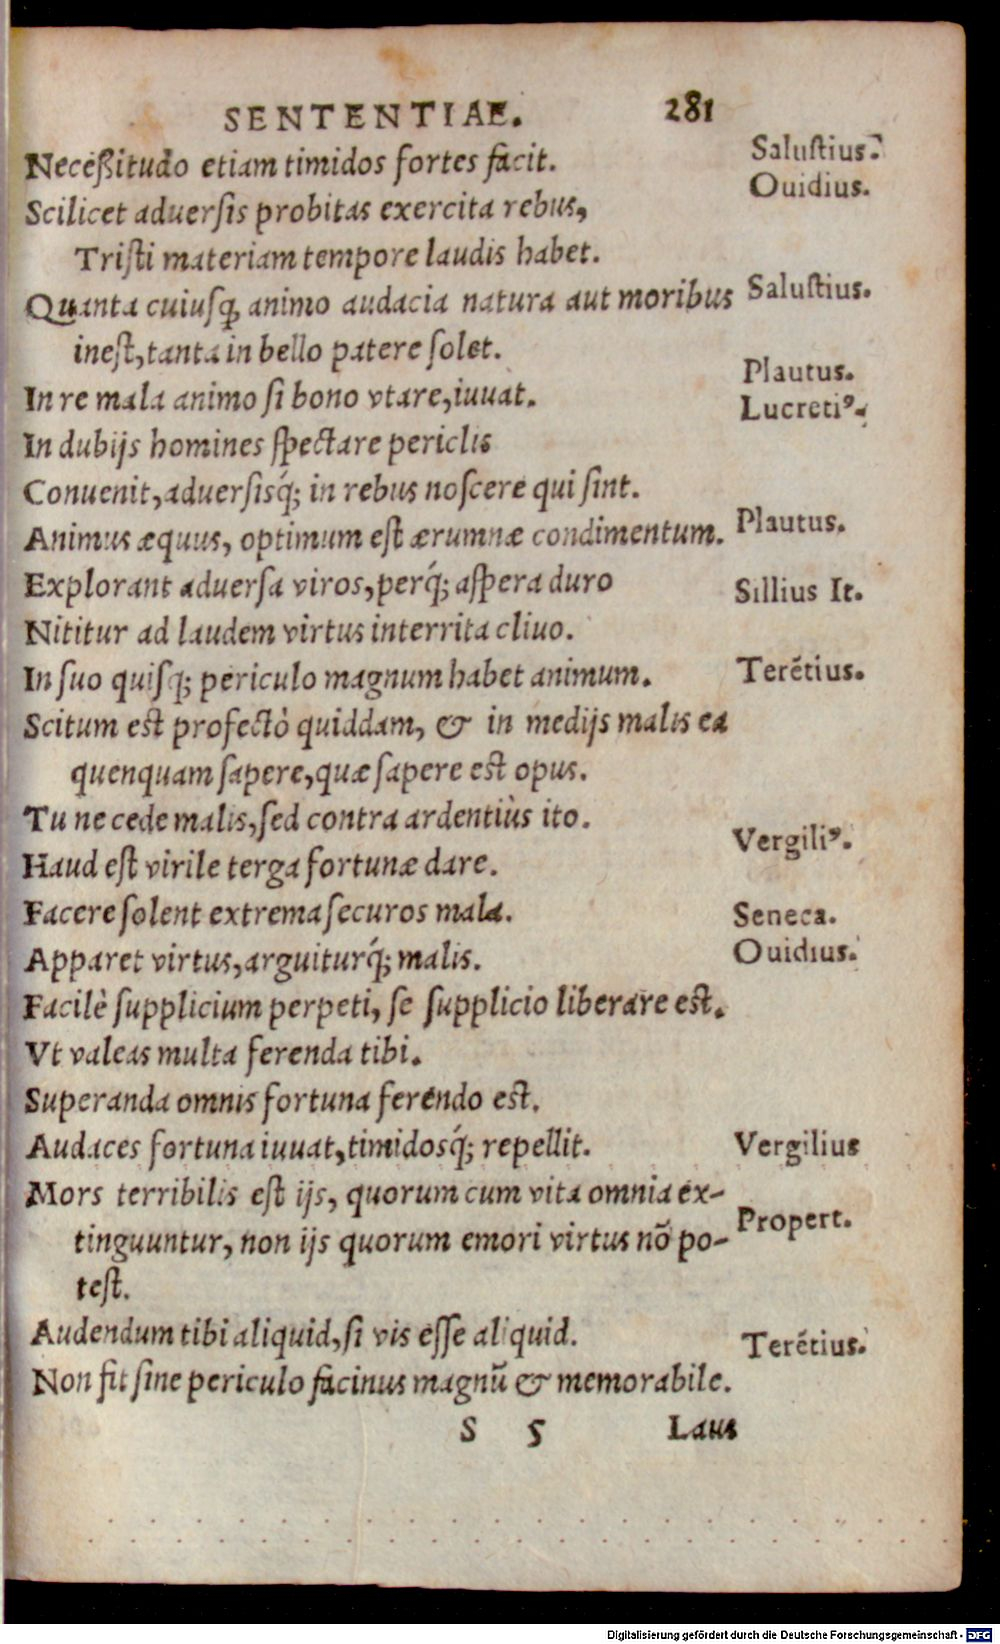 SENTENTIAE. 281
Neceßitudo etiam timidos fortes facit. Saluſtius.
Scilicet aduerſis probitas exercita rebus, Ouidius.
Triſti materiam tempore laudis habet.
Quanta cuiuſq; animo audacia natura aut moribus Saluſtius.
ineſt, tanta in bello patere ſolet.
In re mala animo ſi bono vtare, iuuat. Plautus.
In dubijs homines ſpectare periclis Lucretiꝰ.
Conuenit, aduerſisq́; in rebus noſcere qui ſint.
Animus æquus, optimum eſt ærumnæ condimentum. Plautus.
Explorant aduerſa viros, perq́; aſpera duro Sillius It.
Nititur ad laudem virtus interrita cliuo.
In ſuo quiſq; periculo magnum habet animum. Terẽtius.
Scitum est profectò quiddam, & in medijs malis ea
quenquam ſapere, quæ ſapere est opus.
Tu ne cede malis, ſed contra ardentiùs ito. Vergiliꝰ.
Haud eſt virile terga fortunæ dare.
Facere ſolent extrema ſecuros mala. Seneca.
Apparet virtus, arguiturq́; malis. Ouidius.
Facilè ſupplicium perpeti, ſe ſupplicio liberare est.
Vt valeas multa ferenda tibi.
Superanda omnis fortuna ferendo est.
Audaces fortuna iuuat, timidosq́; repellit. Vergilius
Mors terribilis eſt ijs, quorum cum vita omnia ex-
tinguuntur, non ijs quorum emori virtus nõ po- Propert.
teſt.
Audendum tibi aliquid, ſi vis eſſe aliquid. Terẽtius.
Non fit ſine periculo facinus magnũ & memorabile.
S 5 Laus
Digitalisierung gefördert durch die Deutsche Forschungsgemeinschaft - DFG